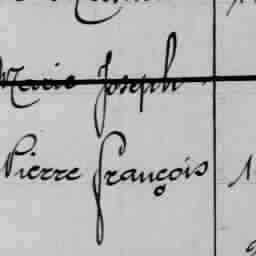 Marie Joseph
Pierre François